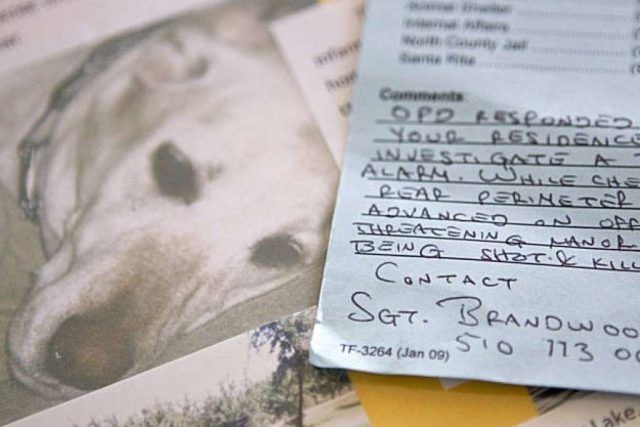 Animal Shelter
Internal Affairs
North County Jail
Santa Rita
Comments:
OPD RESPONDED
YOUR RESIDENCE
INVESTIGATE A
ALARM. WHILE CHE
REAR PERIMETER
ADVANCED ON OFF
THREATENING MANOR
BEING SHOT & KILL
CONTACT
SGT. BRANDWOO
510 773 0
TF-3264 (Jan 09)
Lake